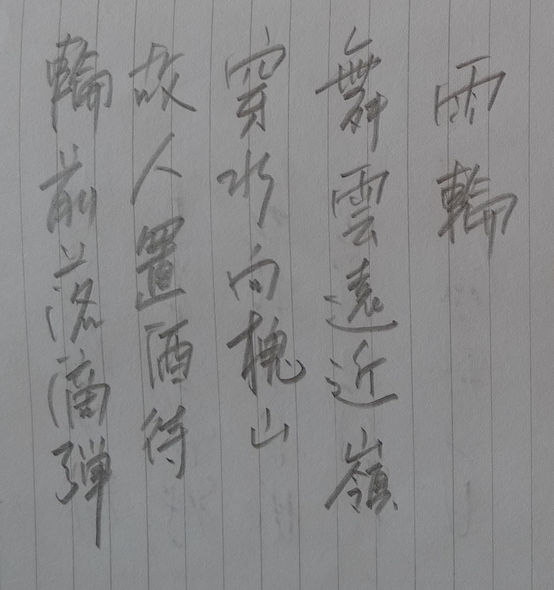 雨輪
舞雲遠近嶺
穿水向槐山
故人置酒待
輪前落滴彈